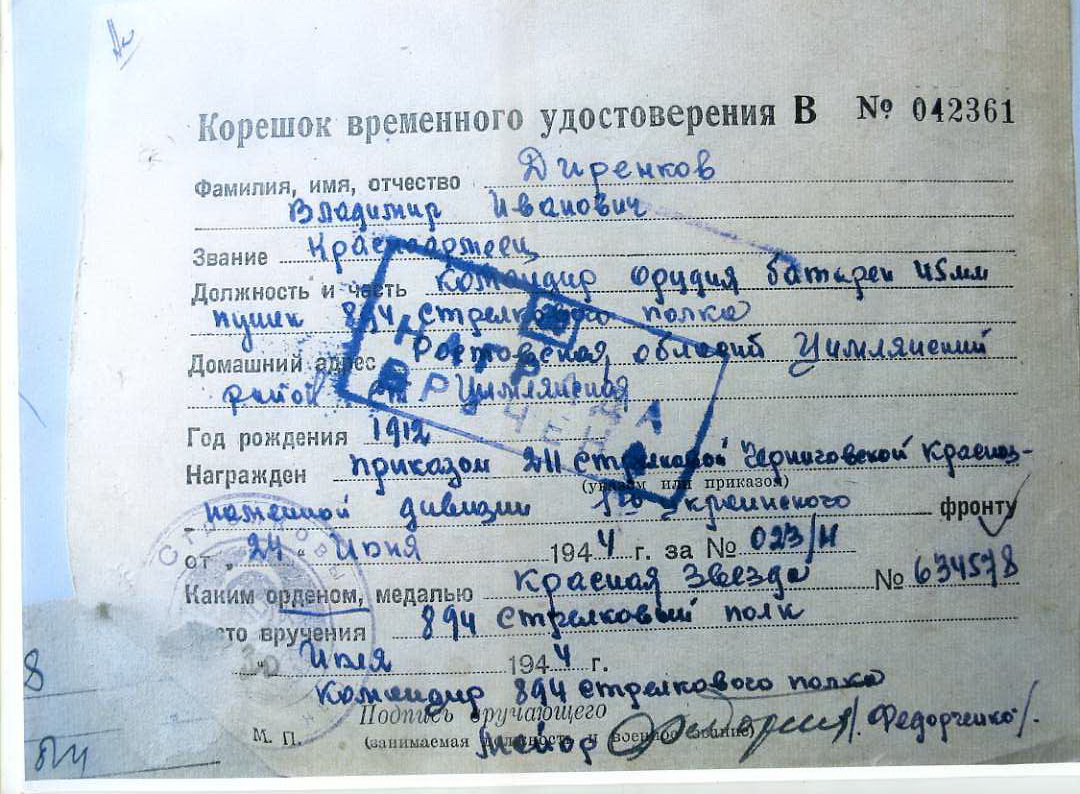 Корешок временного удостоверения В № 042361
Фамилия, имя, отчество Диренков
Владимир Иванович
Звание Красноармеец
Должность и часть Командир орудия батареи 45мм
пушек 894 стрелкового полка
Домашний адрес Ростовская область Цимлянский
район ст Цимлянская
НАГРАДА
ВРУЧЕНА
Год рождения 1912
Награжден приказом 211 стрелковой Черниговской Красноз-
(указом или приказом)
наменной дивизии 1го Украинского фронту
от „24" Июня 1944 г. за № 023/Н
Каким орденом, медалью Красная Звезда № 634578
Место вручения 894 стрелковый полк
30 Июля 1944 г.
Командир 894 стрелкового полка
Подпись вручающего
М. П. (занимаемая должность и военное звание) Майор /Федорченко/.
8